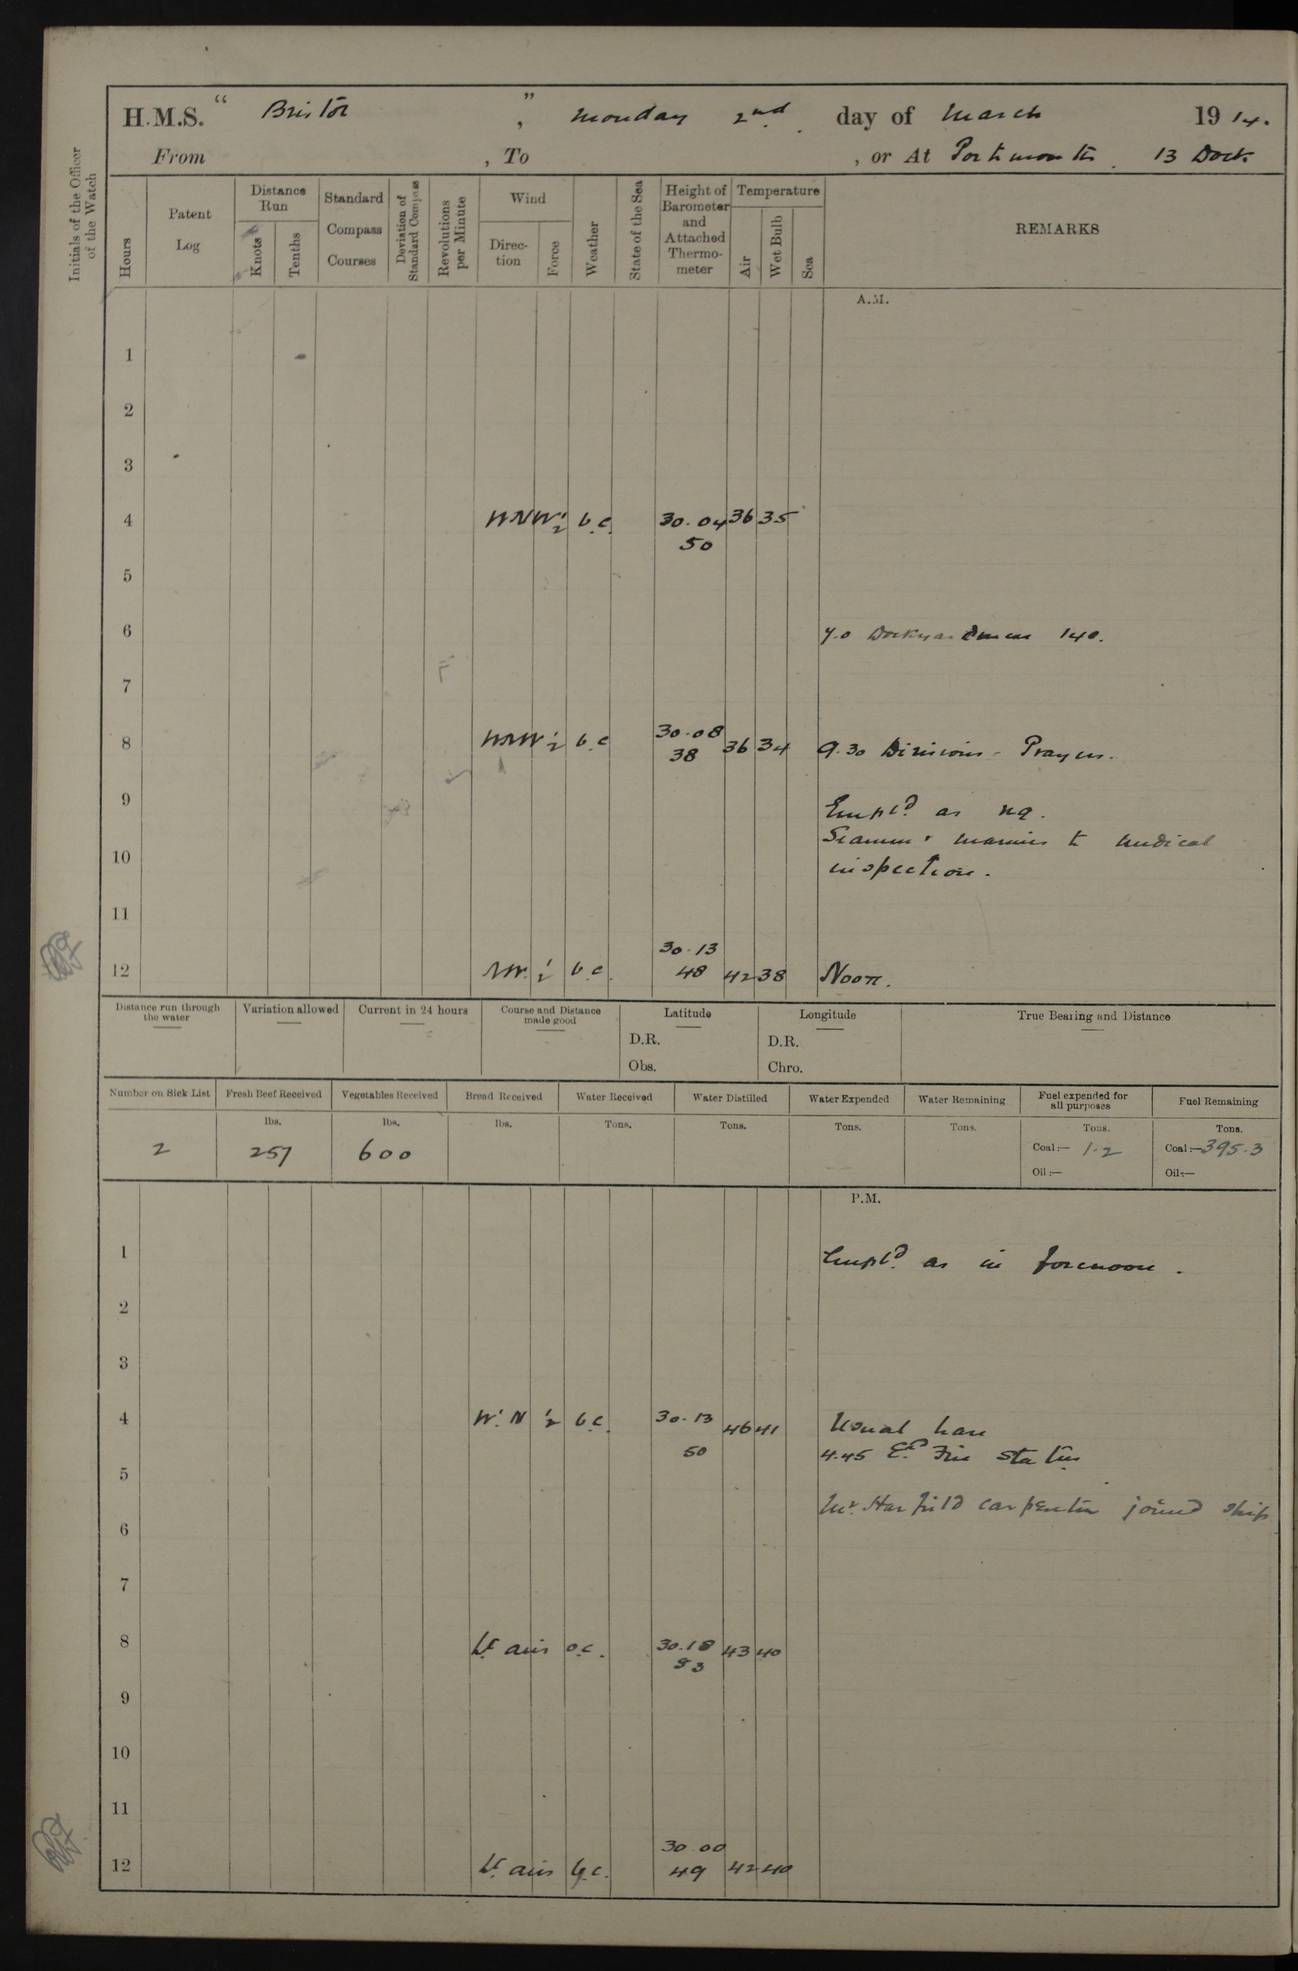 H.M.S. “ Bristol ”, Monday 2nd day of March 1914.
From , To , or At Portsmouth. 13 Dock
Initials of the Officer of the Watch
Hours
Patent Log
Distance Run
Knots
Tenths
Standard Compass Courses
Deviation of Standard Compass
Revolutions per Minute
Wind
Direction
Force
Weather
State of the Sea
Height of Barometer and Attached Thermometer
Temperature
Air
Wet Bulb
Sea
REMARKS
A.M.
1
2
3
4 WNW 1/2 b.c. 30.04 36 35
50
5
6 7.0 Dockyardmen 140.
7
8 WNW 1/2 b.c 30.08 36 34 9.30 Divisions - Prayers.
38
9 Empld. as req.
Seamen & marines to medical
10 inspection.
11
30.13
12 NW. 1/2 b.c. 48 42 38 Noon.
Distance run through the water
Variation allowed
Current in 24 hours
Course and Distance made good
Latitude
D.R.
Obs.
Longitude
D.R.
Chro.
True Bearing and Distance
Number on Sick List
2
Fresh Beef Received
lbs.
257
Vegetables Received
lbs.
600
Bread Received
lbs.
Water Received
Tons.
Water Distilled
Tons.
Water Expended
Tons.
Water Remaining
Tons.
Fuel expended for all purposes
Tons.
Coal:— 1.2
Oil:—
Fuel Remaining
Tons.
Coal:—395.3
Oil:—
P.M.
1 Empld. as in forenoon.
2
3
4 W'N 1/2 b.c. 30.13 46 41 Usual
50 4.45 Ed. Fire stations
5
Mr. Harfield carpenter joined ship
6
7
8 Lt airs o.c. 30.18 43 40
53
9
10
11
30.00
12 Lt airs b.c. 49 42 40